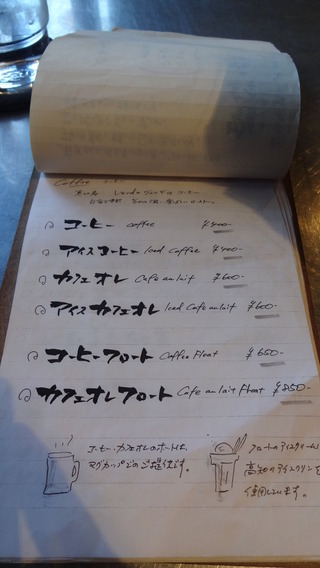 Coffee コーヒー
コーヒー coffee ¥400-
アイスコーヒー Iced Coffee ¥400-
カフェオレ Cafe au lait ¥600-
アイスカフェオレ Iced Cafe au lait ¥600-
コーヒーフロート Coffee Float ¥650-
カフェオレフロート Cafe au lait Float ¥850-
コーヒー・カフェオレのホットは、
マグカップでのご提供です。
フロートのアイスクリームは
高知のアイスクリンを
使用しています。